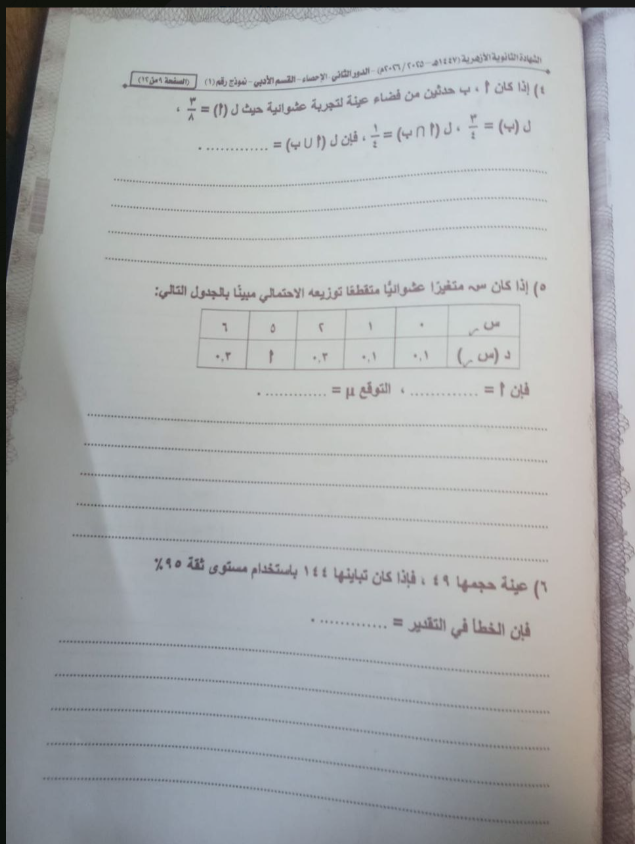 الشهادة الثانوية الأزهرية (١٤٤٧هـ - ٢٠٢٥ / ٢٠٢٦م) - الدور الثاني الإحصاء - القسم الأدبي - نموذج رقم (١) (الصفحة ٩ من ١٢)
٤) إذا كان أ ، ب حدثين من فضاء عينة لتجربة عشوائية حيث ل (أ) = ٣/٨ ،
ل (ب) = ٣/٤ ، ل (أ ∩ ب) = ١/٤ ، فإن ل (أ ∪ ب) = ............ .
٥) إذا كان سـ متغيرًا عشوائيًا متقطعًا توزيعه الاحتمالي مبينًا بالجدول التالي:
سـر ٠ ١ ٢ ٥ ٦
د (سـر) ٠,١ ٠,١ ٠,٣ أ ٠,٣
فإن أ = ............ ، التوقع μ = ............ .
٦) عينة حجمها ٤٩ ، فإذا كان تباينها ١٤٤ باستخدام مستوى ثقة ٩٥٪
فإن الخطأ في التقدير = ............ .